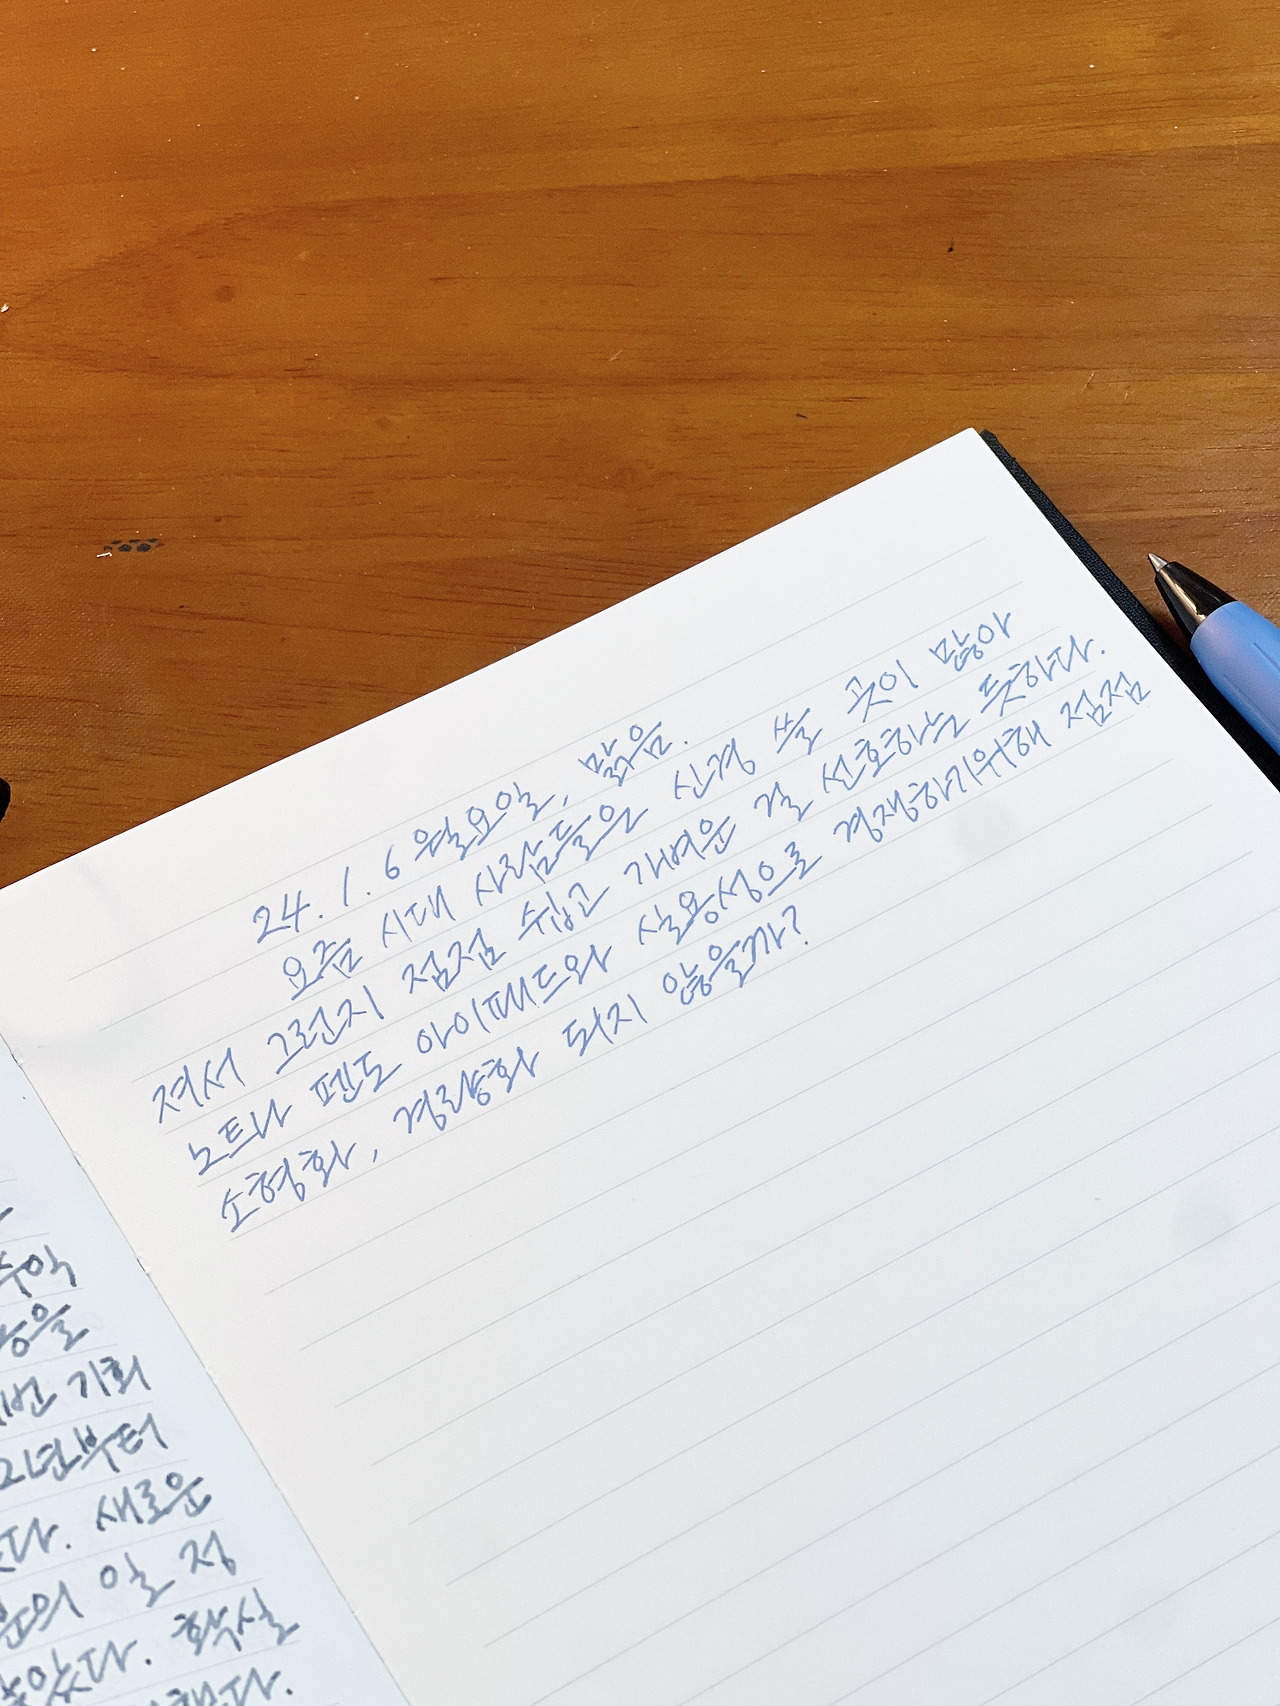 24. 1. 6 월요일, 맑음.
요즘 시대 사람들은 신경 쓸 곳이 많아
져서 그런지 점점 쉽고 가벼운 걸 선호하는 듯하다.
노트나 펜도 아이패드와 실용성으로 경쟁하기위해 점점
소형화, 경량화 되지 않을까?
추억
기회
년부터
새로운
의 일 정
확실